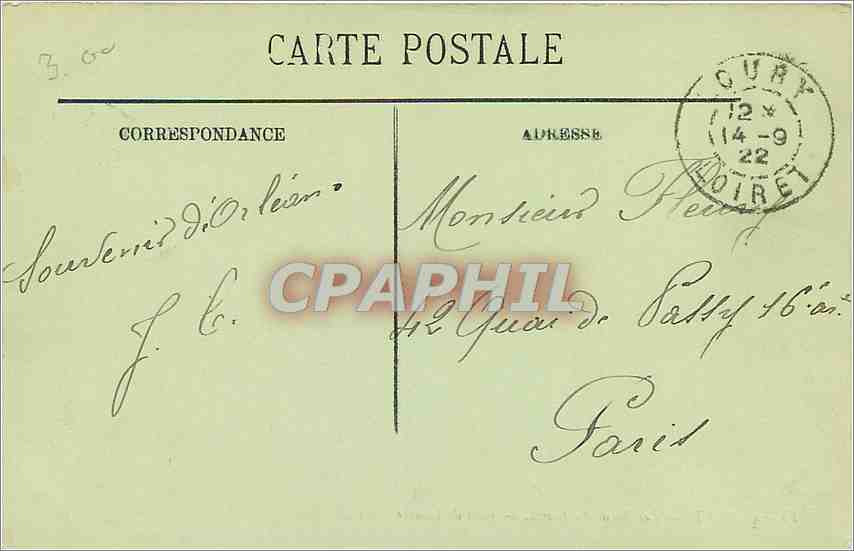 3.00
CARTE POSTALE
CORRESPONDANCE
ADRESSE
OURY
12 *
14 -9
22
LOIRET
Souvenir d'Orléans.
J. C.
Monsieur Fleury
42 Quai de Passy 16e arr
Paris
CPAPHIL